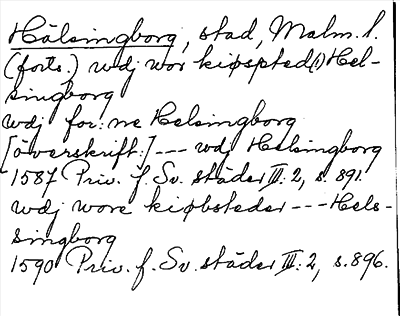 Hälsingborg, stad, Malm. l.
(forts.) udj vor kiøspted(!) Hel-
singborg
udj for:ne Helsingborg
[överskrift:] --- udj Helsingborg
1587 Priv. f. Sv. städer III: 2, s. 891.
udj vore kiøbsteder --- Hels-
singborg
1590 Priv. f. Sv. städer III: 2, s. 896.